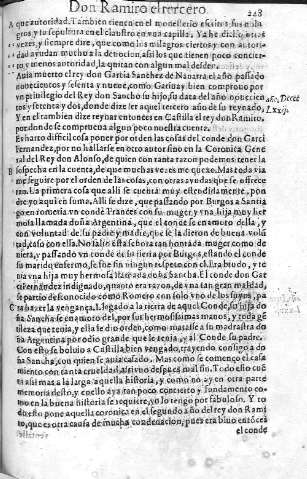 Don Ramiro el tercero.
248
A que autoridad. Tambien tienen en el monesterio escritos sus mila
gros, y su sepultura en el claustro en vna capilla. Ya he dicho otras
vezes, y siempre dire, que como los milagros ciertos y con autori-
dad ayudan mucho a la deuocion, assi los que tienen poco concierto
y menos autoridad, la quitan con algun mal desden.
Auia muerto el rey don Garcia Sanchez de Nauarra el año passado
nouecientos y sesenta y nueue, como Garibay bien comprouo por
vn priuilegio del Rey don Sancho su hijo, su data del año nouecien
tos y setenta y dos, donde dize ser aquel tercero año de su reynado,
Y en el tambien dize reynar entonces en Castilla el rey don Ramiro.
por don de se comprueua algun poco nuestra cuenta.
Es harto difficultosa poner por orden las cosas del conde don Garci
Fernandez, por no hallarse en otro autor sino en la Coronica Gene
ral del Rey don Alonso, de quien con tanta razon podemos tener la
sospecha en la cuenta, de que muchas vezes me quexe. Mas toda via
me seguire por el orden de las cosas, con otras ayudas que se offrece
ran. La primera cosa que alli se cuenta muy estendidamente, pon
dre yo aqui en suma. Alli se dize, que passando por Burgos a Santia
go en romeria vn conde Frances con su muger, y vna hija muy her
mosa llamada doña Argentina, que el conde se enamoro della, y
con voluntad de su padre y madre, que se la dieron de buena volū
tad, caso con ella. No salio esta señora tan honrada muger como de
uiera, y passando vn conde de su tierra por Burgos, estando el conde
su marido enfermo, se fue sin ningun respeto con el. Era biudo, y te
nia vna hija muy hermosa llamada doña Sancha. El conde don Gar
ci Fernandez indignado, quanto era razon, de vna tan gran maldad,
se partio desconocido como Romero con solo vno de los suyos, pa
ra auer la vengança. Llegado a la tierra de aquel Conde, su hija do
ña Sancha se enamoro del, por sus hermosissimas manos, y toda gē
tileza que tenia, y ella se dio orden, como matasse a su madrastra do
ña Argentina por odio grande que le tenia, y al Conde su padre.
Con esto se boluio a Castilla bien vengado, trayendo consigo a do
ña Sancha, con quien se auia casado. Mas como se començo el casa
miento con tanta crueldad, assi vuo despues mal fin. Todo esto cuē
ta assi mas a la larga aquella historia, y como no ay en otra parte
memoria desto, y cuello aya tan poco concierto y fundamento co
mo en la buena historia se requiere, yo lo tengo por fabuloso. Y to
do esto pone aquella coronica en el segundo año del rey don Rami
ro, que es otra causa de mucha condenacion, pues era biuo entōces
el conde